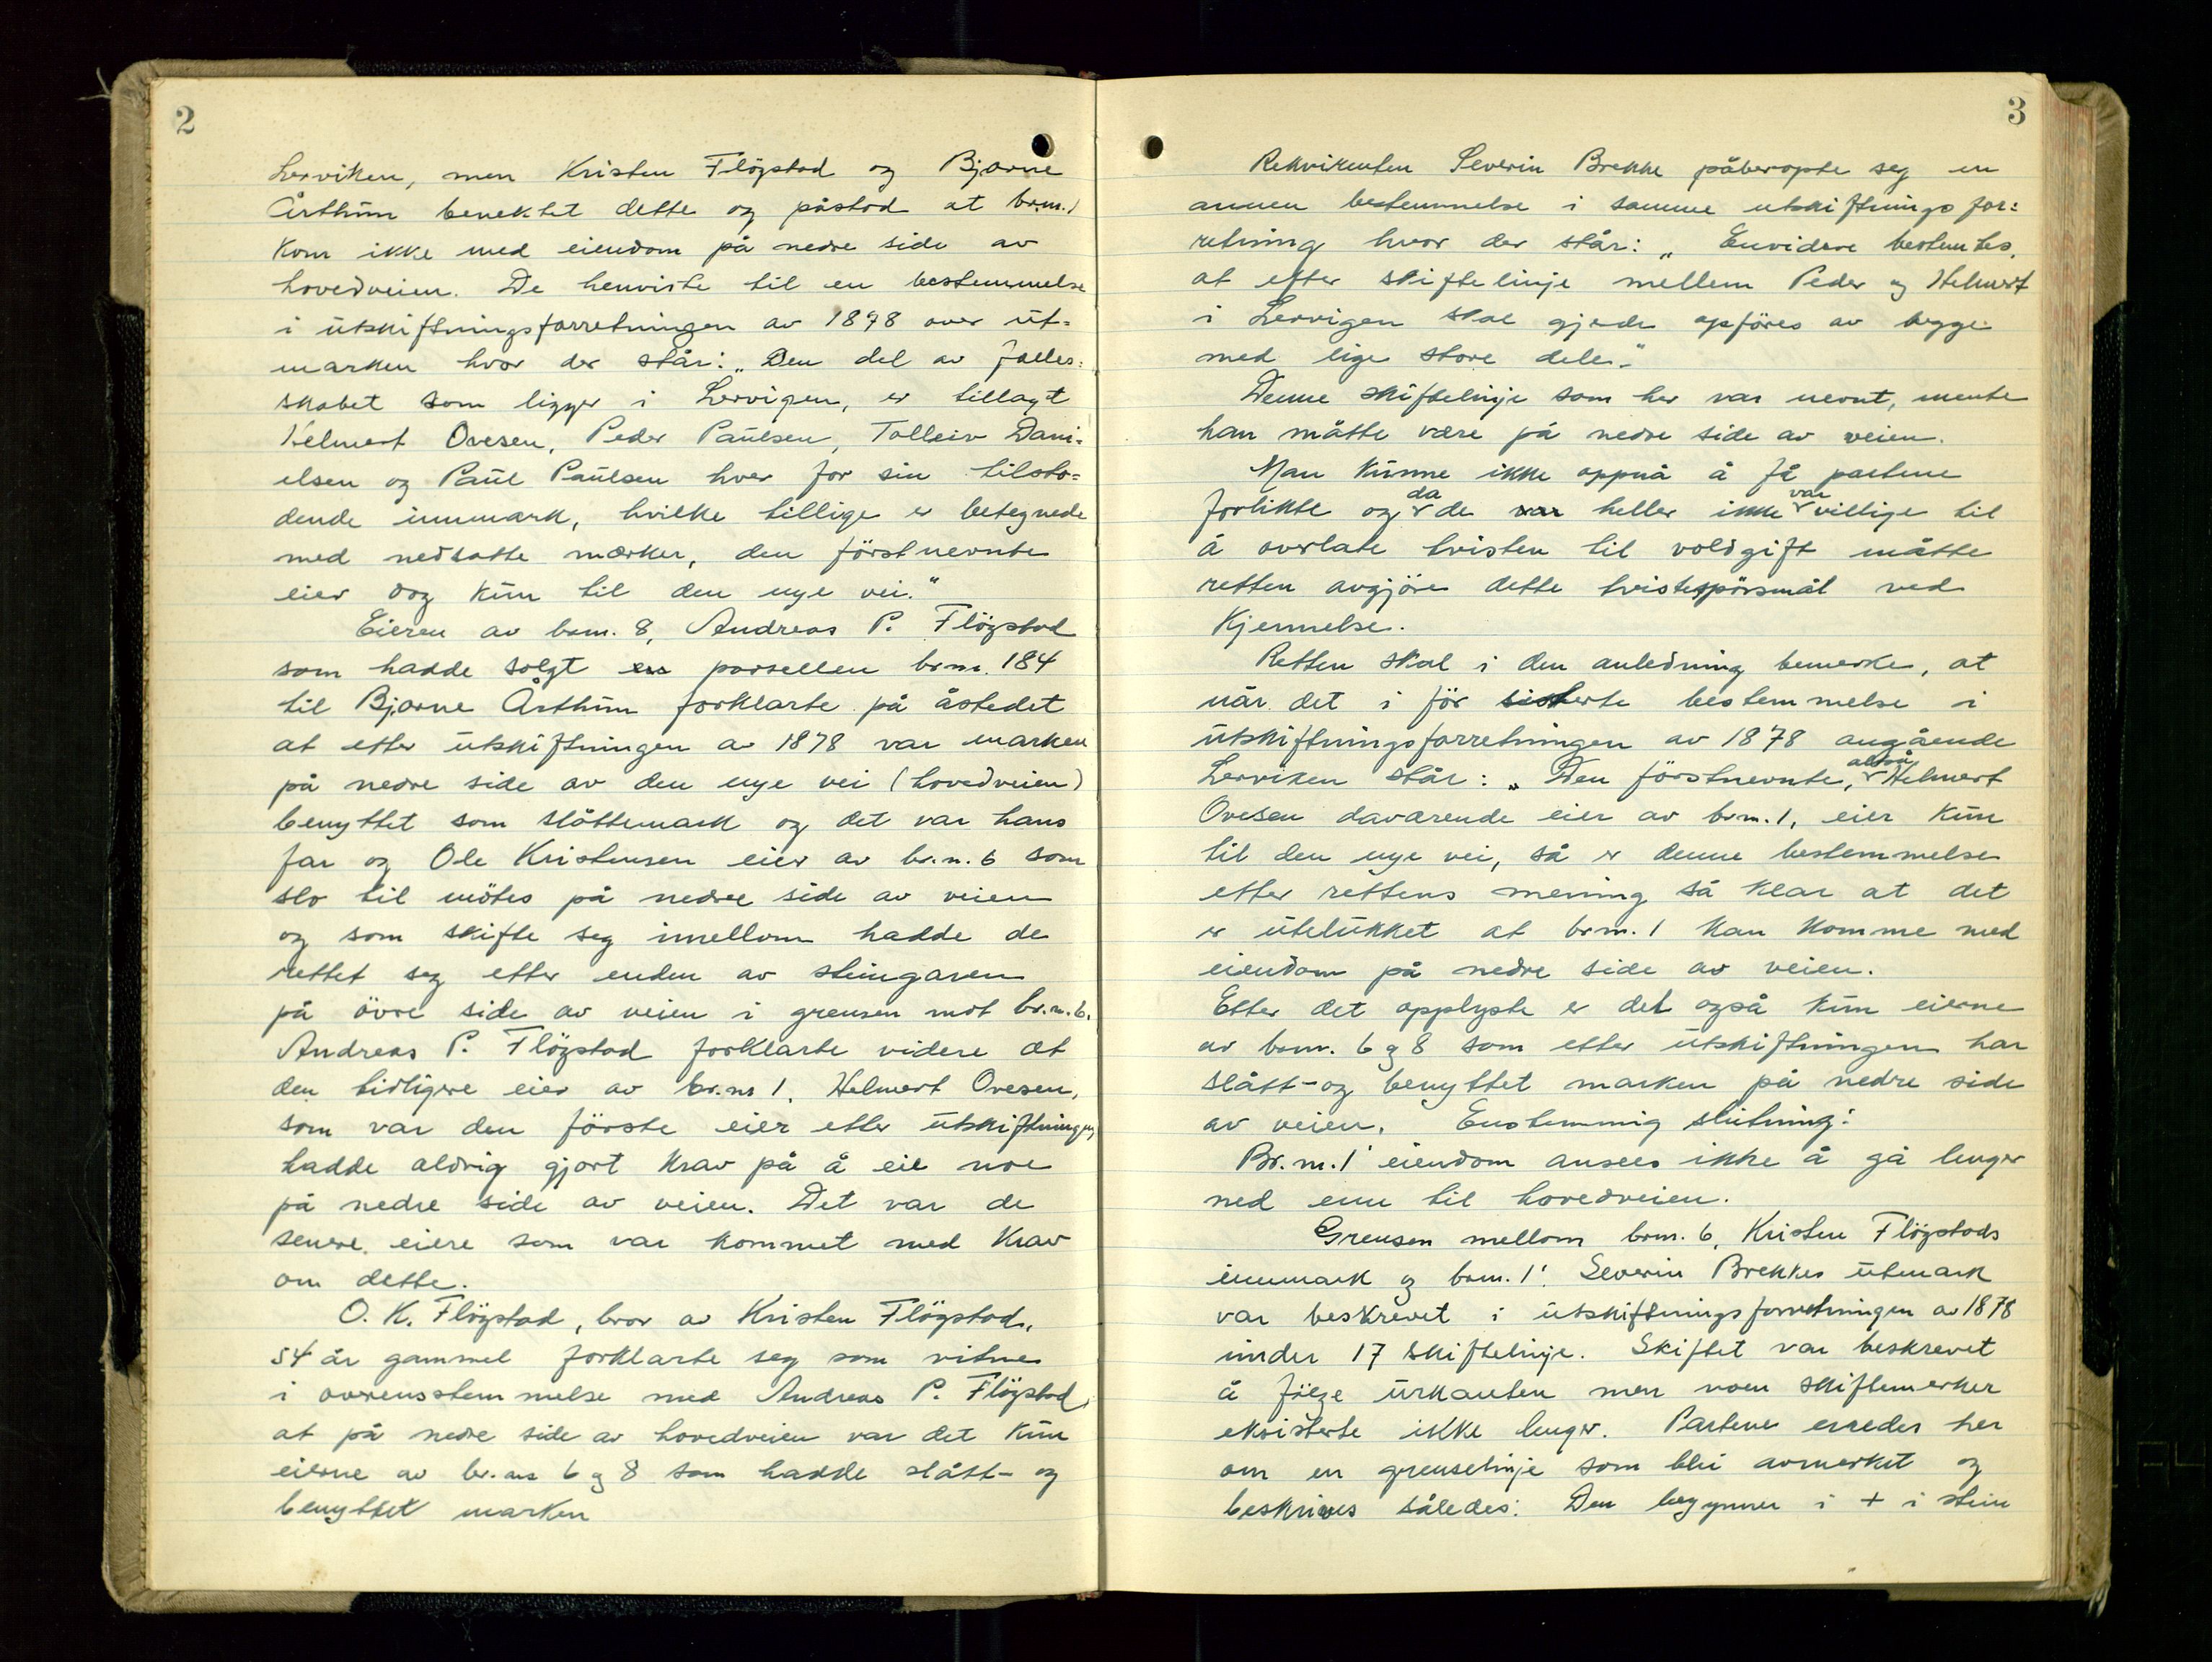 2
Lerviken, men Kristen Flögstad og Bjarne
Årthun benektet dette og påstod at br.nr. 1
kom ikke med eiendom på nedre side av
hovedveien. De henviste til en bestemmelse
i utskiftningsforretningen av 1878 over ut=
marken hvor der står: „Den del av felles=
skabet som ligger i Lervigen, er tillagt
Helmert Ovesen, Peder Paulsen, Tolleiv Dani=
elsen og Paul Paulsen hver for sin tilstö=
dende innmark, hvilke tillige er betegnede
med nedsatte mærker, den förstnevnte
eier dog kun til den nye vei."
Eieren av br.nr. 8, Andreas P. Flögstad
som hadde solgt en parsellen br.nr. 184
til Bjarne Årthun forklarte på åstedet
at etter utskiftningen av 1878 var marken
på nedre side av den nye vei (hovedveien)
benyttet som slåttemark og det var hans
far og Ole Kristensen eier av br.n. 6 som
slo til mötes på nedre side av veien
og som skifte seg imellom hadde de
rettet seg etter enden av steingaren
på övre side av veien i grensen mot br.n. 6.
Andreas P. Flögstad forklarte videre at
den tidligere eier av br.nr 1, Helmert Ovesen,
som var den förste eier etter utskiftningen,
hadde aldrig gjort krav på å eie noe
på nedre side av veien. Det var de
senere eiere som var kommet med krav
om dette.
O. K. Flögstad, bror av Kristen Flögstad,
54 år gammel forklarte seg som vitne
i overensstemmelse med Andreas P. Flögstad,
at på nedre side av hovedveien var det kun
eierne av br.nr 6 og 8 som hadde slått- og
benyttet marken
3
Rekvirenten Severin Brekke påberopte seg en
annen bestemmelse i samme utskiftnings for=
retning hvor der står: „Envidere bestemtes,
at efter skiftelinje mellem Peder og Helmert
i Lervigen skal gjerde opföres av begge
med lige store deler."
Denne skiftelinje som her var nevnt, mente
han måtte være på nedre side av veien.
Man kunne ikke oppnå å få partene
forlikte og da de var heller ikke var villige til
å overlate tvisten til voldgift måtte
retten avgjöre dette tvistespörsmål ved
Kjennelse.
Retten skal i den anledning bemerke, at
når det i för siterte bestemmelse i
utskiftningsforretningen av 1878 angående
Lerviken står: „Den förstnevnte, altså Helmert
Ovesen daværende eier av br.nr. 1, eier kun
til den nye vei, så er denne bestemmelse
etter rettens mening så klar at det
er utelukket at br.nr. 1 kan komme med
eiendom på nedre side av veien.
Etter det opplyste er det også kun eierne
av br.nr. 6 og 8 som etter utskiftningen har
slått- og benyttet marken på nedre side
av veien. Enstemmig slutning:
Br.nr. 1' eiendom ansees ikke å gå lenger
ned enn til hovedveien.
Grensen mellom br.nr. 6, Kristen Flögstads
innmark og br.nr. 1' Severin Brekkes utmark
var beskrevet i utskiftningsforretningen av 1878
under 17 skiftelinje. Skiftet var beskrevet
å fölge urkanten men noen skiftemerker
eksisterte ikke lenger. Partene enedes her
om en grenselinje som blir avmerket og
beskrives således: Den begynner i + i stein